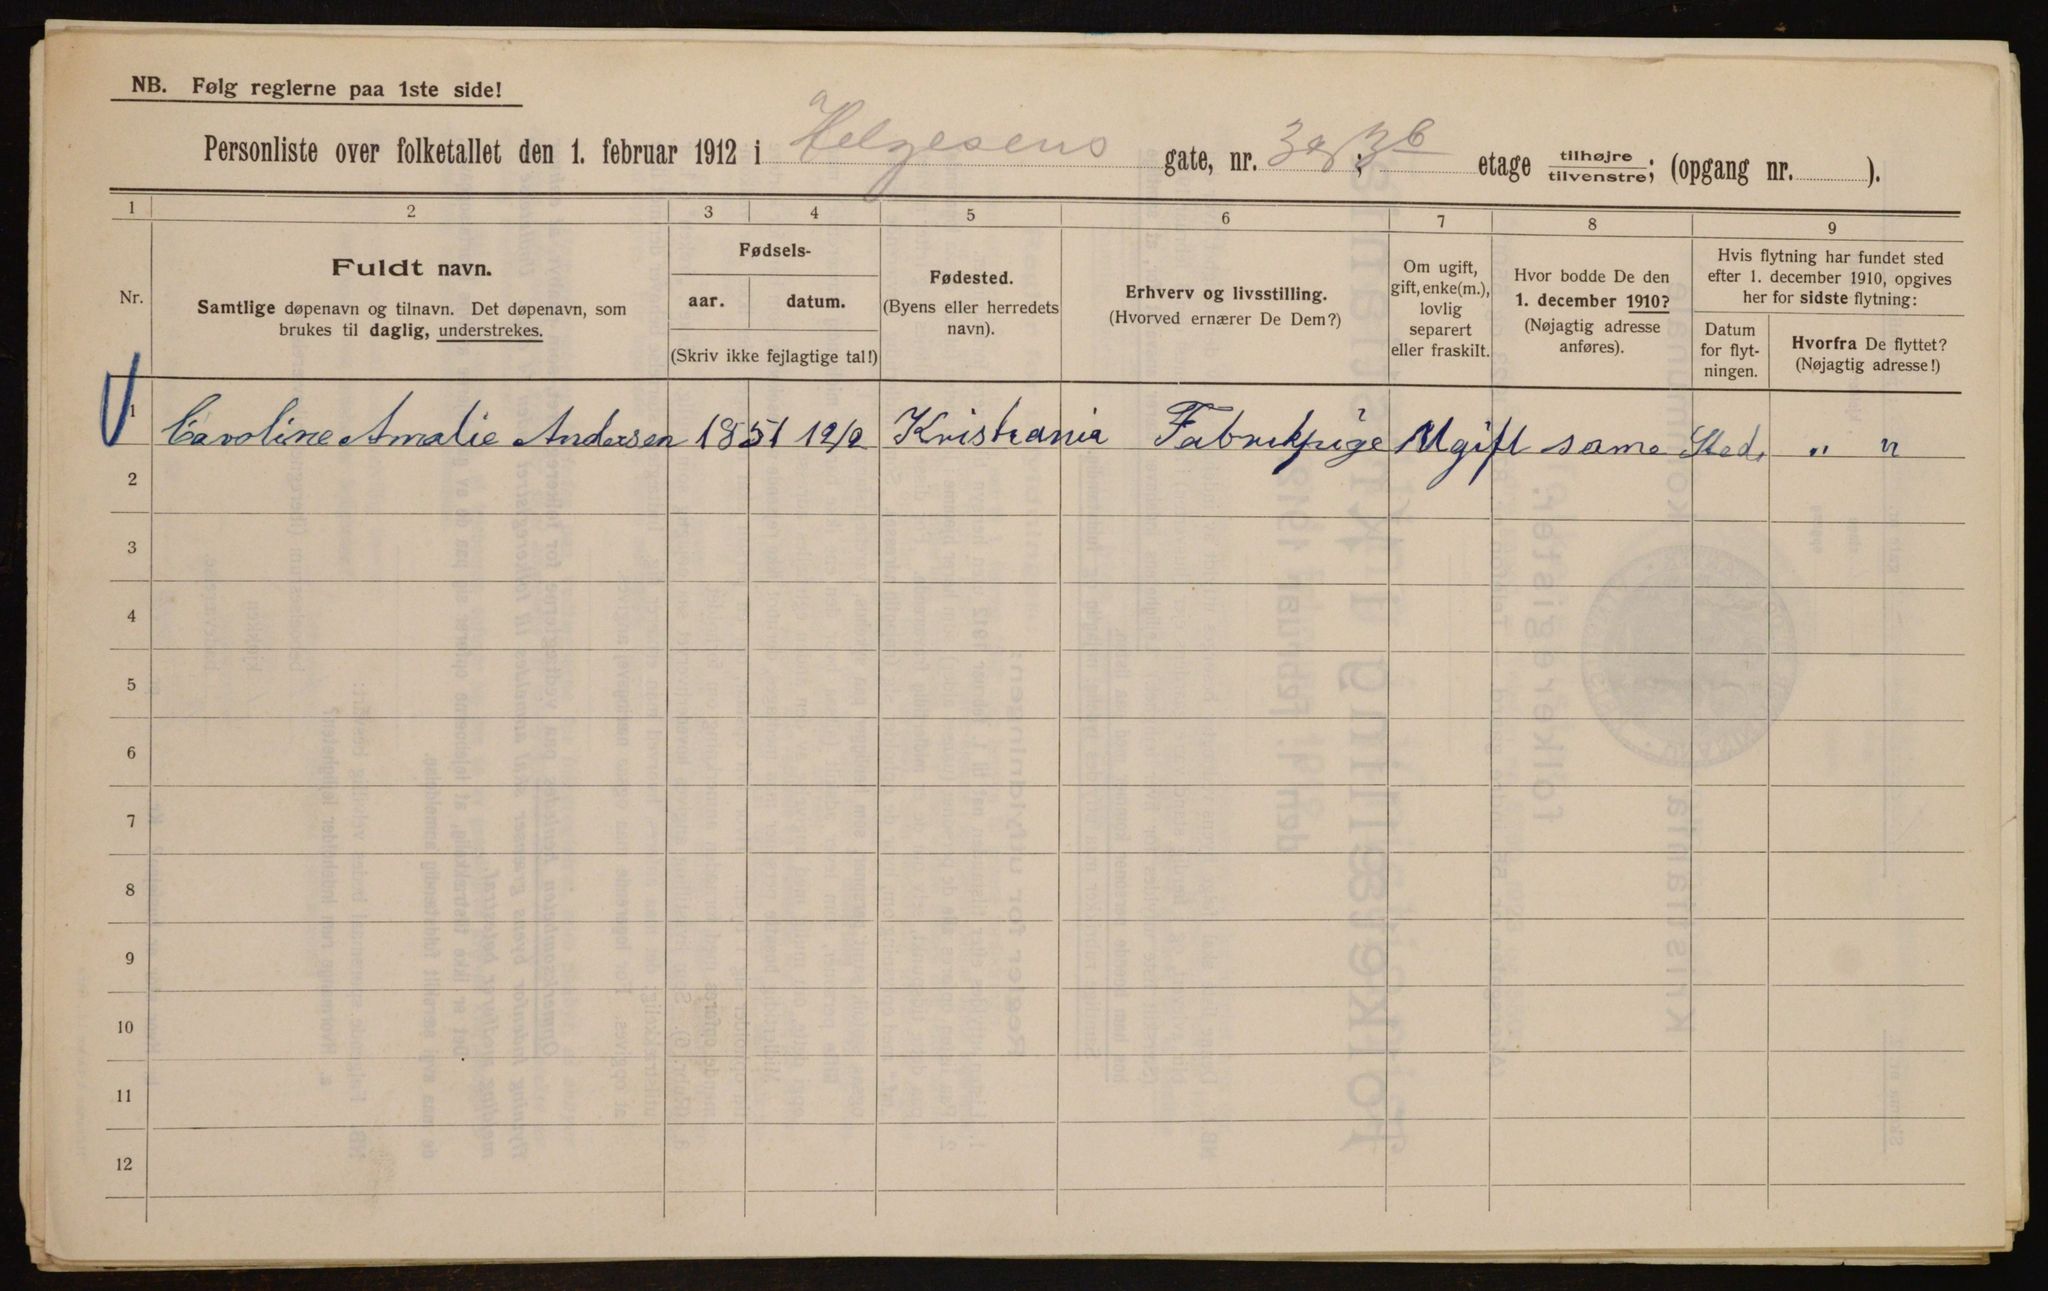 NB. Følg reglerne paa 1ste side!
Personliste over folketallet den 1. februar 1912 i Helgesens gate, nr. ; etage tilhøjre tilvenstre; (opgang nr. ).
1 2 3 4 5 6 7 8 9
Nr.
Fuldt navn.
Samtlige døpenavn og tilnavn. Det døpenavn, som
brukes til daglig, understrekes.
Fødsels-
aar. datum.
(Skriv ikke fejlagtige tal!)
Fødested.
(Byens eller herredets
navn).
Erhverv og livsstilling.
(Hvorved ernærer De Dem?)
Om ugift,
gift, enke(m.),
lovlig
separert
eller fraskilt.
Hvor bodde De den
1. december 1910?
(Nøjagtig adresse
anføres).
Hvis flytning har fundet sted
efter 1. december 1910, opgives
her for sidste flytning:
Datum
for flyt-
ningen.
Hvorfra De flyttet?
(Nøjagtig adresse!)
1 Caroline Amalie Andersen 1851 12/2 Kristiania Fabrikpige Ugift samme Sted. " "
2
3
4
5
6
7
8
9
10
11
12